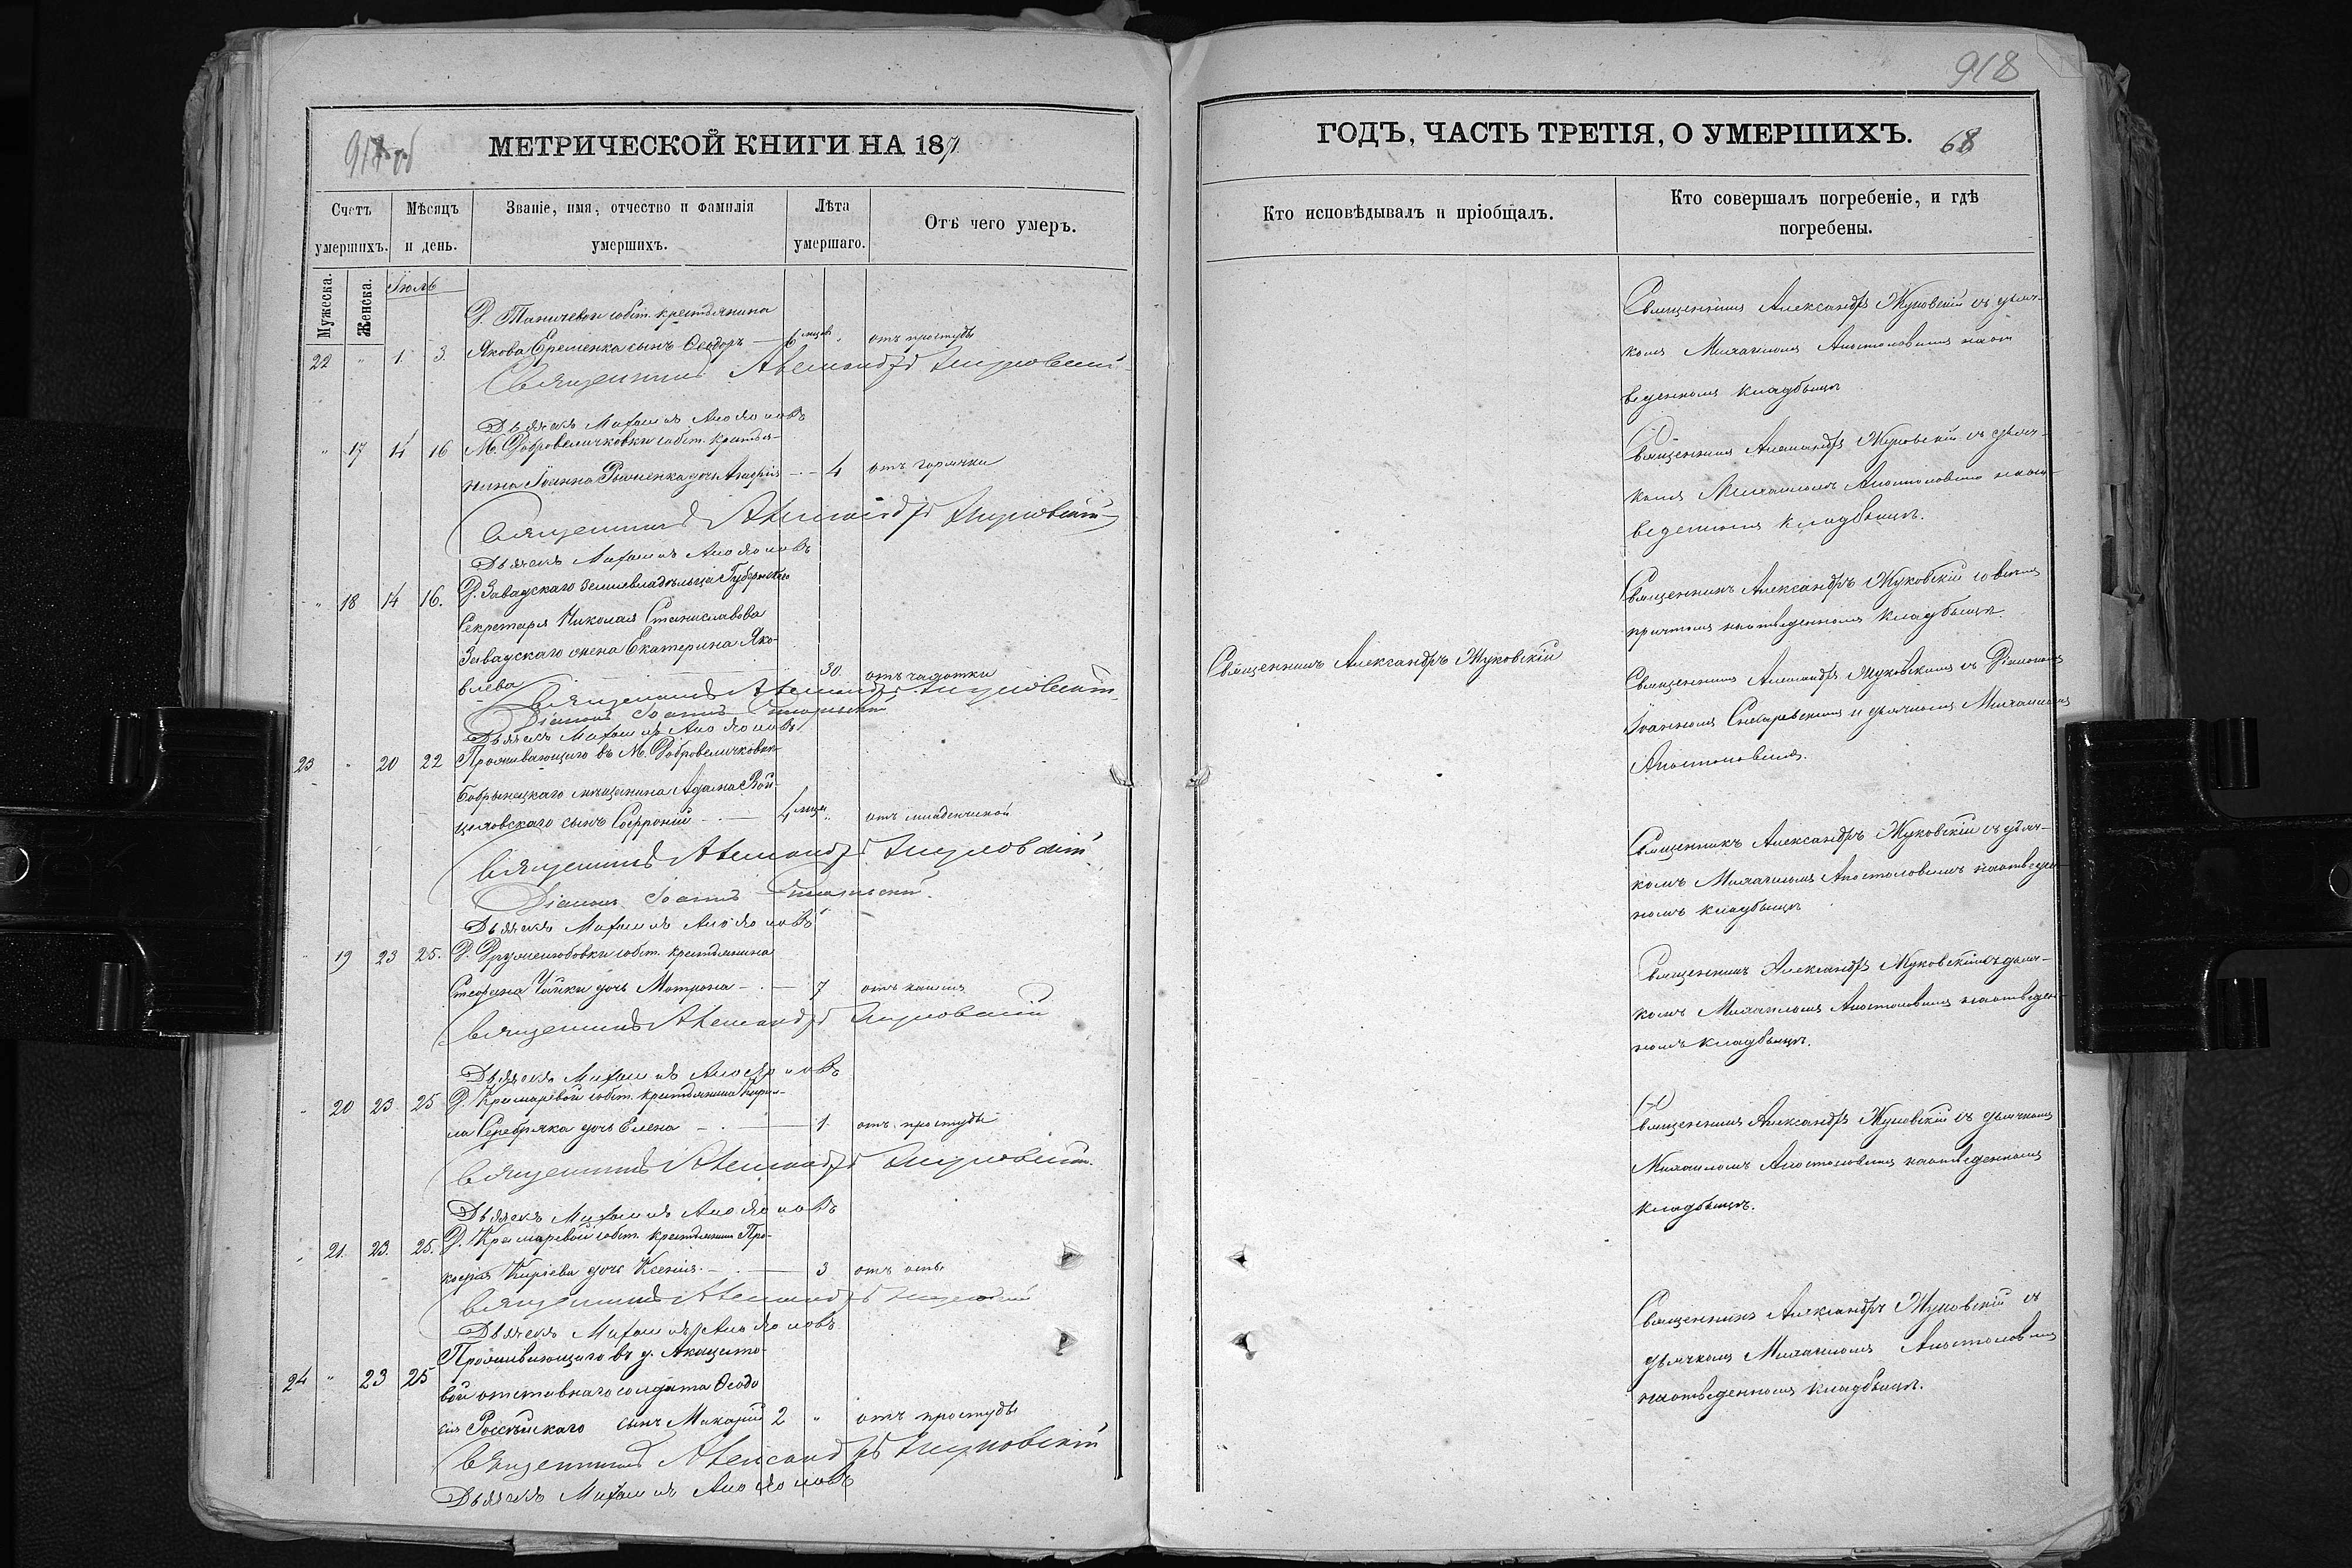 918
917 об
МЕТРИЧЕСКОЙ КНИГИ НА 187
Счетъ умершихъ.
Мѣсяцъ и день.
Званіе, имя, отчество и фамилія умершихъ.
Лѣта умершаго.
Отъ чего умеръ.
Мужеска.
Женска.
Іюль
Д. Таничевой собст. крестьянина
22 " 1 3. Якова Еременка сынъ Ѳеодоръ — 6 мцов. " отъ простуды
Священникъ Александръ Жуковскій
Дьячекъ Михаилъ Апостоловъ
" 17 14 16 М. Добровеличковки собст. крестья-
нина Іоанна дочь — 4 отъ горячки
Священникъ Александръ Жуковскій
Дьячекъ Михаилъ Апостоловъ
" 18 14 16. Д. Завадскаго землевладѣльца Губернскаго
Секретаря Николая Станиславова
Завадскаго жена Екатерина Яко-
влева — 30. отъ чахотки
Священникъ Александръ Жуковскій
Діаконъ Іоаннъ
Дьячекъ Михаилъ Апостоловъ
23 " 20 22 Проживающаго въ М. Добровеличковкѣ
Бобринецкаго мѣщанина Адама Вой-
цеховскаго сынъ Софроній — 4 мцев. " отъ младенческой
Священникъ Александръ Жуковскій
Діаконъ Іоаннъ
Дьячекъ Михаилъ Апостоловъ
" 19 23 25. Д. Дружелюбовки собст. крестьянина
Стефана Чайки дочь Матрона — 7 отъ кашля
Священникъ Александръ Жуковскій
Дьячекъ Михаилъ Апостоловъ
" 20 23 25 Д. Крамаревой собст. крестьянина Кирил-
ла Серебряка дочь Елена — 1. отъ простуды
Священникъ Александръ Жуковскій
Дьячекъ Михаилъ Апостоловъ
" 21. 23. 25. Д. Крамаревой собст. крестьянина Про-
кофія Киріева дочь Ксенія — 3 отъ оспы
Священникъ Александръ Жуковскій
Дьячекъ Михаилъ Апостоловъ
Проживающаго въ д.
24 " 23 25 вой отставнаго солдата Ѳеодо
сія сынъ Макарій 2 " отъ простуды
Священникъ Александръ Жуковскій
Дьячекъ Михаилъ Апостоловъ
ГОДЪ, ЧАСТЬ ТРЕТІЯ, О УМЕРШИХЪ.
68
Кто исповѣдывалъ и пріобщалъ.
Кто совершалъ погребеніе, и гдѣ
погребены.
Священникъ Александръ Жуковскій съ дьяч-
комъ Михаиломъ Апостоловымъ на от
веденномъ кладбищѣ
Священникъ Александръ Жуковскій съ дьяч-
комъ Михаиломъ Апостоловымъ на от-
веденномъ кладбищѣ.
Священникъ Александръ Жуковскій со всѣмъ
причтомъ на отведенномъ кладбищѣ.
Священникъ Александръ Жуковскій
Священникъ Александръ Жуковскимъ съ Діакономъ
Іоанномъ и дьячкомъ Михаиломъ
Апостоловымъ.
Священникъ Александръ Жуковскій съ дьяч-
комъ Михаиломъ Апостоловымъ на отведен-
номъ кладбищѣ
Священникъ Александръ Жуковскій съ дьяч-
комъ Михаиломъ Апостоловымъ на отведен-
номъ кладбищѣ.
Священникъ Александръ Жуковскій съ дьячкомъ
Михаиломъ Апостоловымъ на отведенномъ
кладбищѣ.
Священникъ Александръ Жуковскій съ
дьячкомъ Михаиломъ Апостоловымъ
на отведенномъ кладбищѣ.